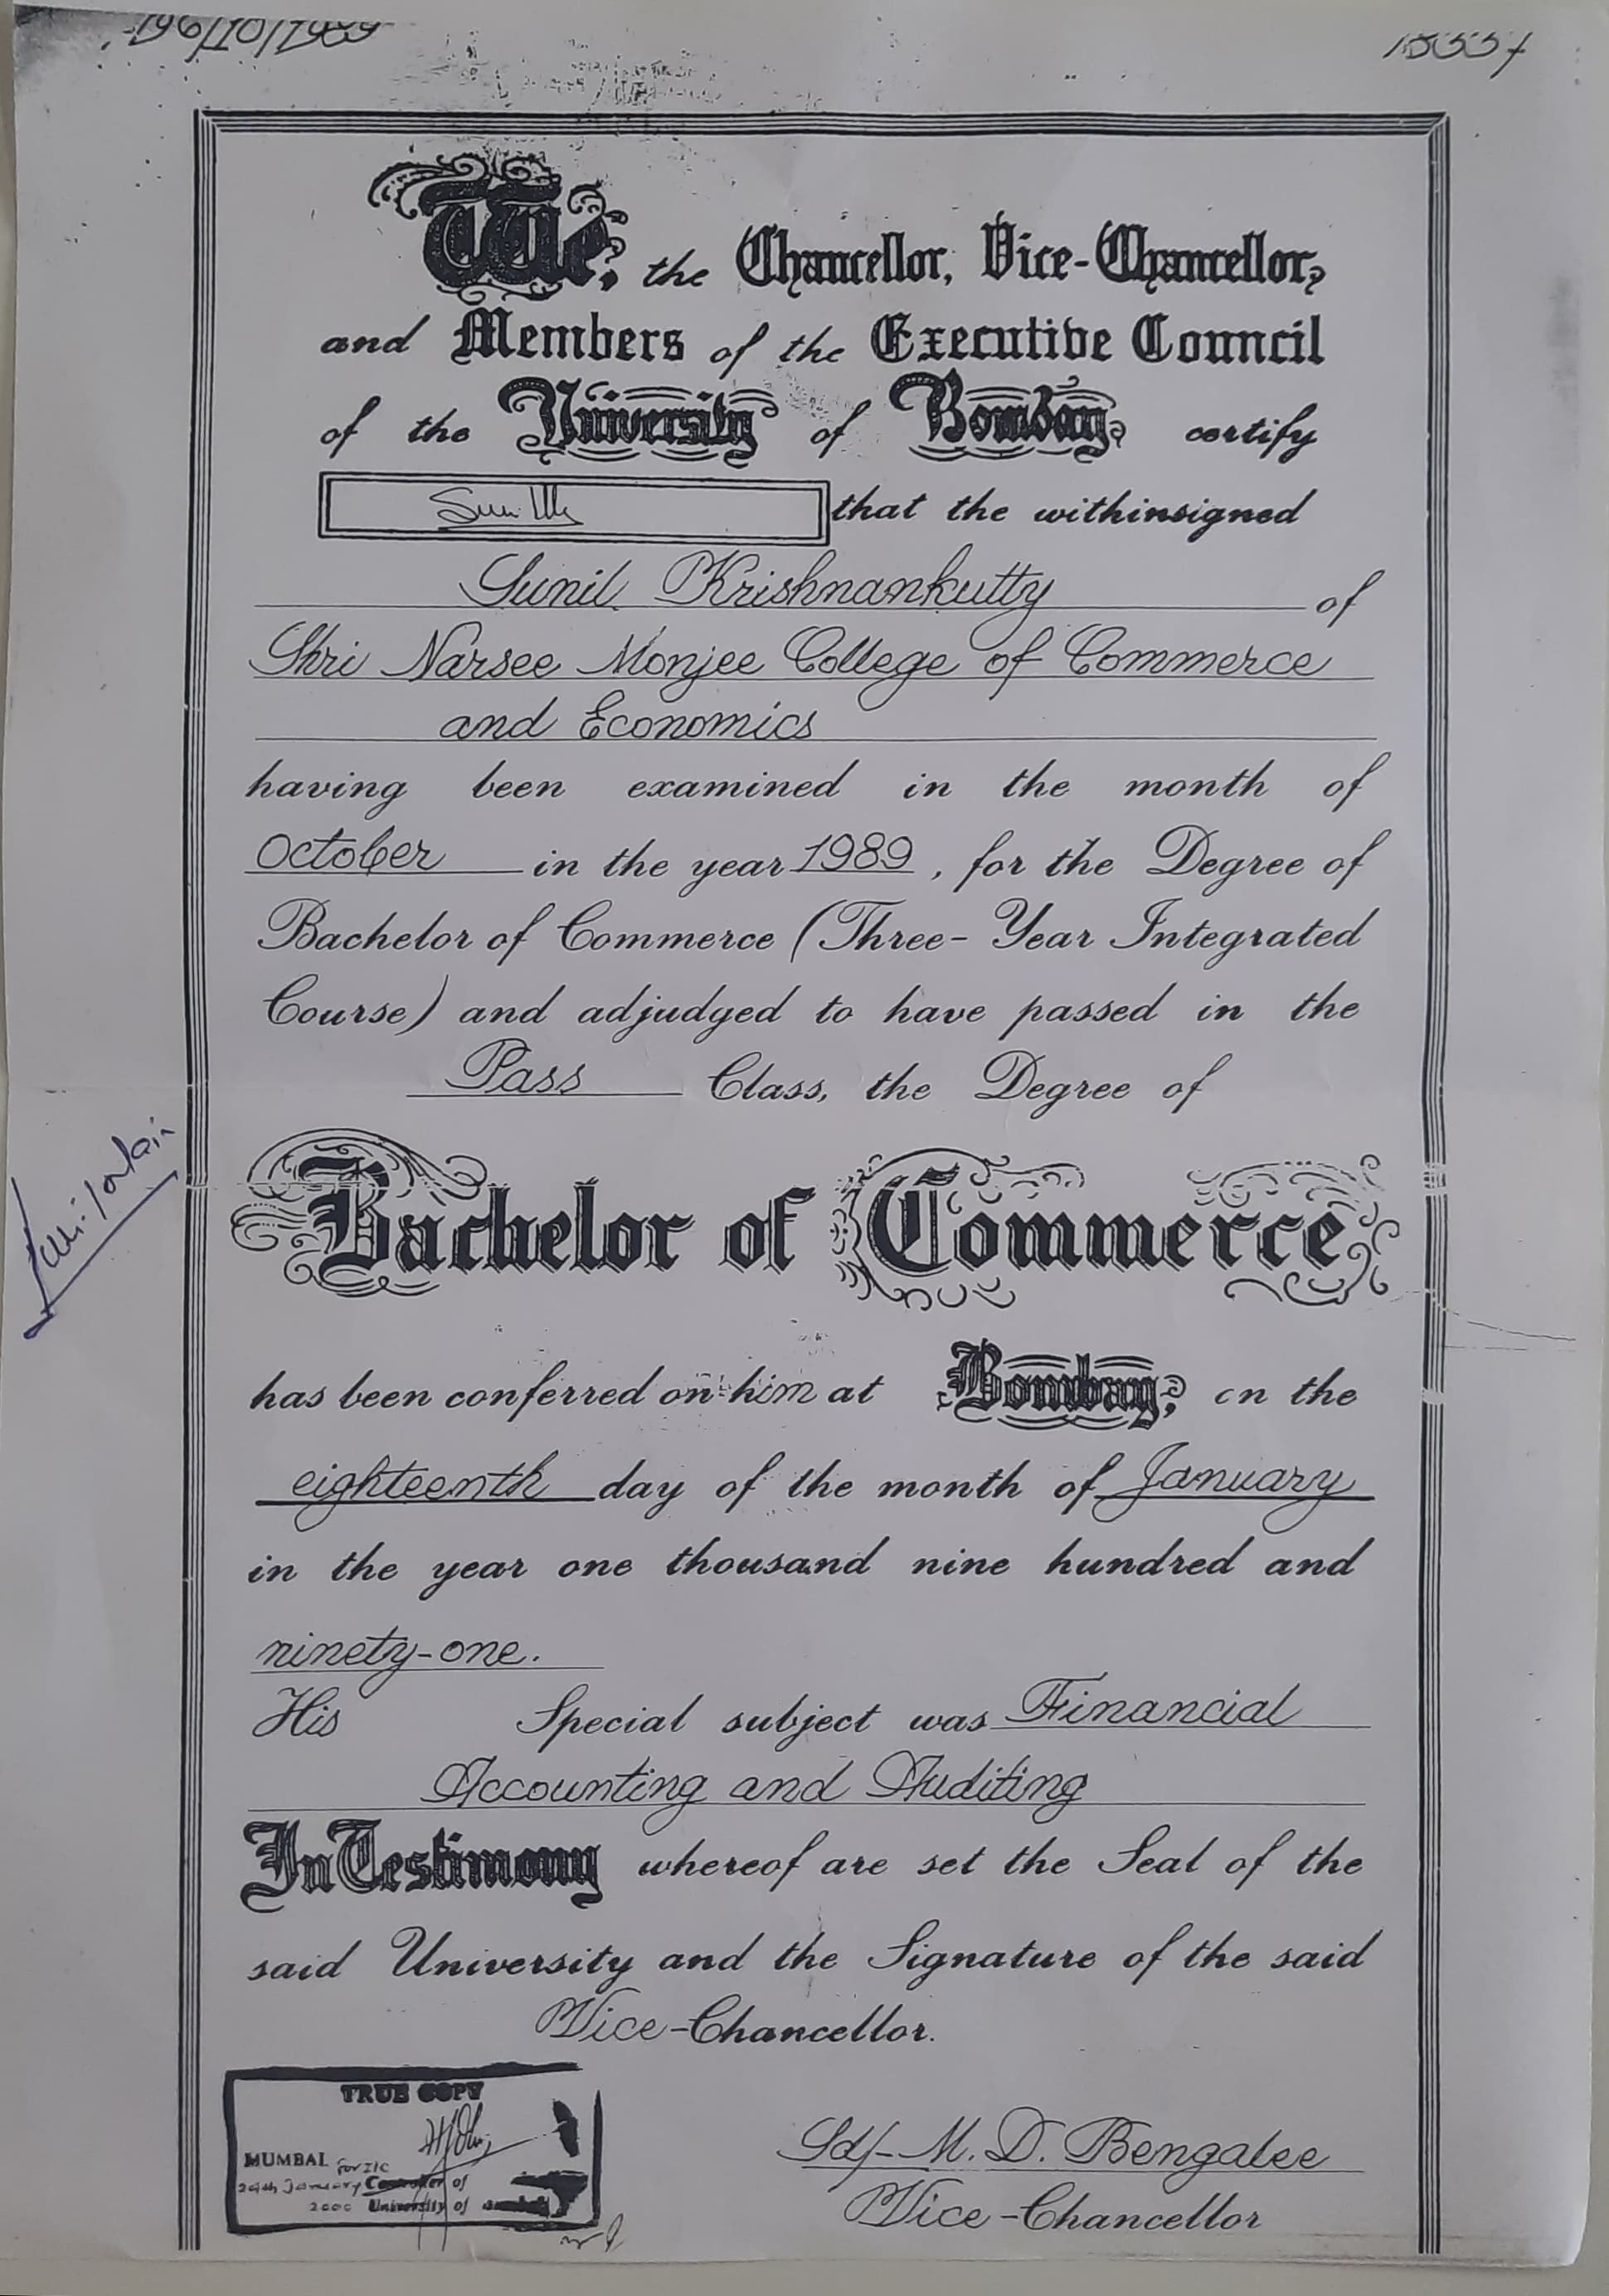 We, the Chancellor, Vice-Chancellor,
and Members of the Executive Council
of the University of Bombay, certify
that the withinsigned
Sunil Krishnankutty of
Shri Narsee Monjee College of Commerce
and Economics
having been examined in the month of
October in the year 1989, for the Degree of
Bachelor of Commerce (Three-Year Integrated
Course) and adjudged to have passed in the
Pass Class, the Degree of
Bachelor of Commerce
has been conferred on him at Bombay, on the
eighteenth day of the month of January
in the year one thousand nine hundred and
ninety-one.
His Special subject was Financial
Accounting and Auditing
In Testimony whereof are set the Seal of the
said University and the Signature of the said
Vice-Chancellor.
TRUE COPY
MUMBAI. for I/c
January
2000 University of
Sd/- M. D. Bengalee
Vice-Chancellor